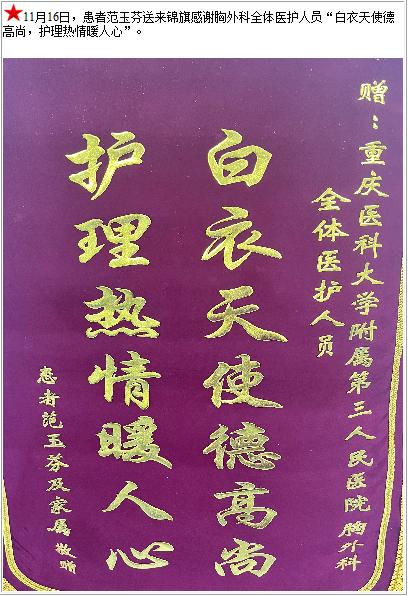 11月16日，患者范玉芬送来锦旗感谢胸外科全体医护人员“白衣天使德
高尚，护理热情暖人心”。
赠：重庆医科大学附属第三人民医院胸外科
全体医护人员
白衣天使德高尚
护理热情暖人心
患者范玉芬及家属敬赠